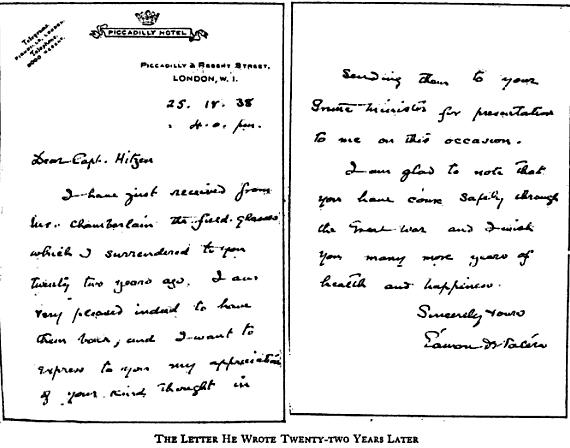 PICCADILLY HOTEL
PICCADILLY & REGENT STREET,
LONDON, W. 1.
4.0. pm.
Dear Capt. Hitzen
I have just received from
Mr. Chamberlain the field-glasses
which I surrendered to you
twenty two years ago. I am
very pleased indeed to have
them back, and I want to
express to you my appreciation
of your kind thought in
Sending them to your
Prime Minister for presentation
to me on this occasion.
I am glad to note that
you have come safely through
the Great War and I wish
you many more years of
health and happiness.
Sincerely Yours
Éamon De Valera
THE LETTER HE WROTE TWENTY-TWO YEARS LATER